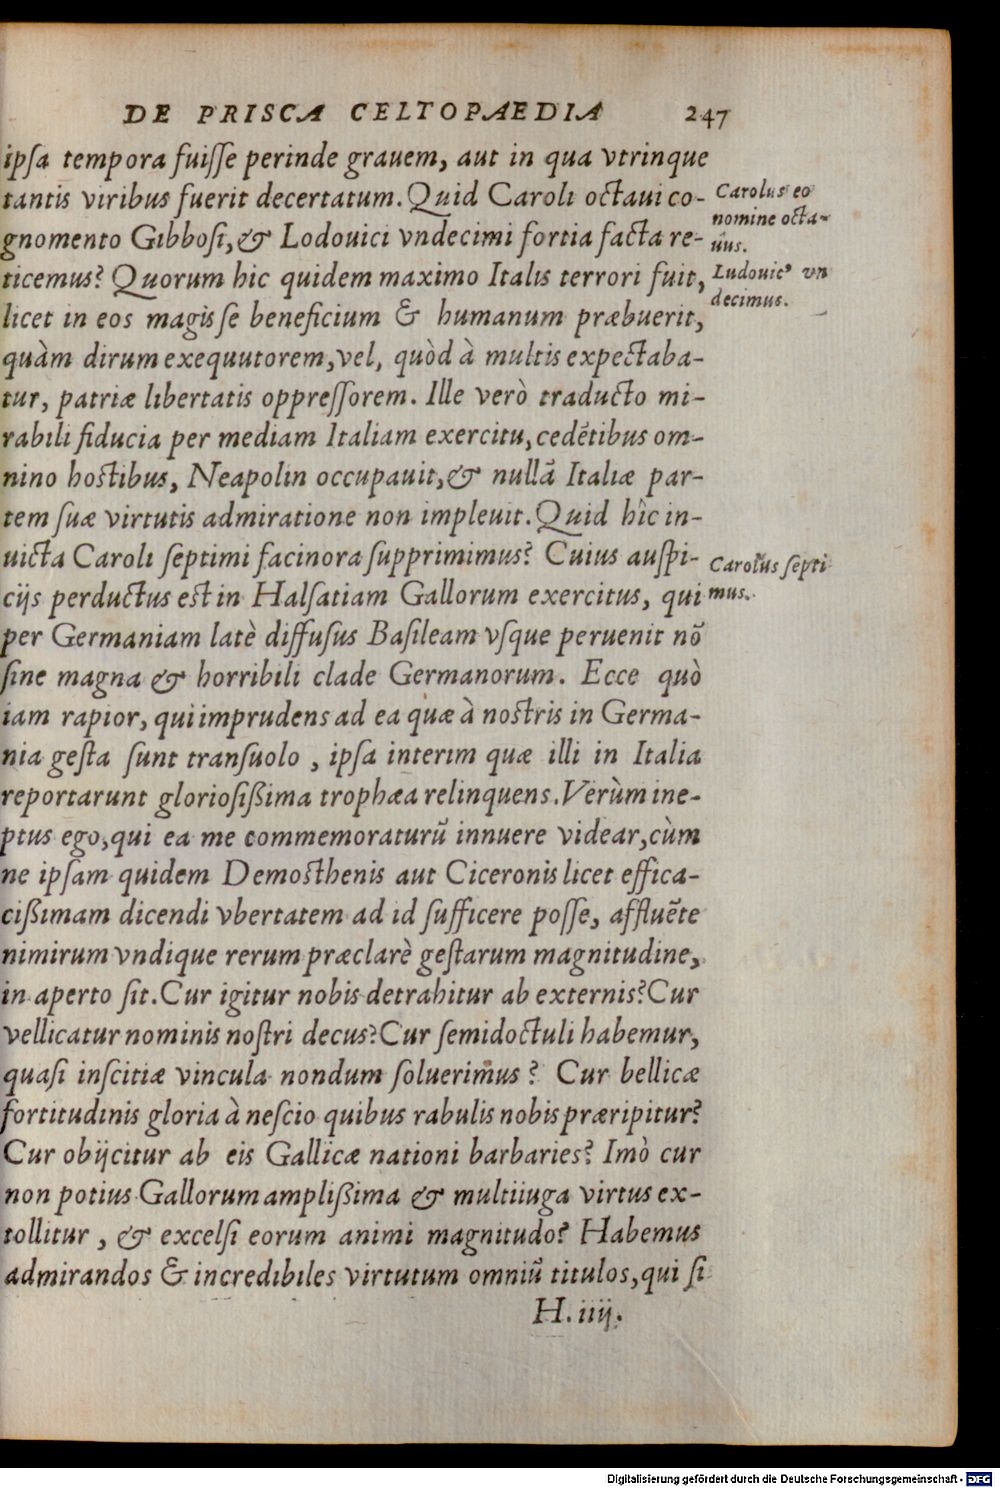 DE PRISCA CELTOPAEDIA 247
ipſa tempora fuiſſe perinde grauem, aut in qua vtrinque
tantis viribus fuerit decertatum. Quid Caroli octaui co-
gnomento Gibboſi, & Lodouici vndecimi fortia facta re-
ticemus? Quorum hic quidem maximo Italis terrori fuit,
licet in eos magis ſe beneficium & humanum præbuerit,
quàm dirum exequutorem, vel, quòd à multis expectaba-
tur, patriæ libertatis oppreſſorem. Ille verò traducto mi-
rabili fiducia per mediam Italiam exercitu, cedẽtibus om-
nino hostibus, Neapolin occupauit, & nullã Italiæ par-
tem ſuæ virtutis admiratione non impleuit. Quid hîc in-
uicta Caroli ſeptimi facinora ſupprimimus? Cuius auſpi-
cijs perductus est in Halſatiam Gallorum exercitus, qui
per Germaniam latè diffuſus Baſileam vſque peruenit nõ
ſine magna & horribili clade Germanorum. Ecce quò
iam rapior, qui imprudens ad ea quæ à nostris in Germa-
nia geſta ſunt tranſuolo, ipſa interim quæ illi in Italia
reportarunt glorioſißima trophæa relinquens. Verùm ine-
ptus ego, qui ea me commemoraturũ innuere videar, cùm
ne ipſam quidem Demosthenis aut Ciceronis licet effica-
cißimam dicendi vbertatem ad id ſufficere poſſe, affluẽte
nimirum vndique rerum præclarè geſtarum magnitudine,
in aperto ſit. Cur igitur nobis detrahitur ab externis? Cur
vellicatur nominis noſtri decus? Cur ſemidoctuli habemur,
quaſi inſcitiæ vincula nondum ſoluerimus? Cur bellicæ
fortitudinis gloria à neſcio quibus rabulis nobis præripitur?
Cur obijcitur ab eis Gallicæ nationi barbaries? Imò cur
non potius Gallorum amplißima & multiiuga virtus ex-
tollitur, & excelſi eorum animi magnitudo? Habemus
admirandos & incredibiles virtutum omniũ titulos, qui ſi
H. iiij.
Carolus eo
nomine octa-
uus.
Ludouic⁹ vn
decimus.
Carolus ſepti
mus.
Digitalisierung gefördert durch die Deutsche Forschungsgemeinschaft - DFG